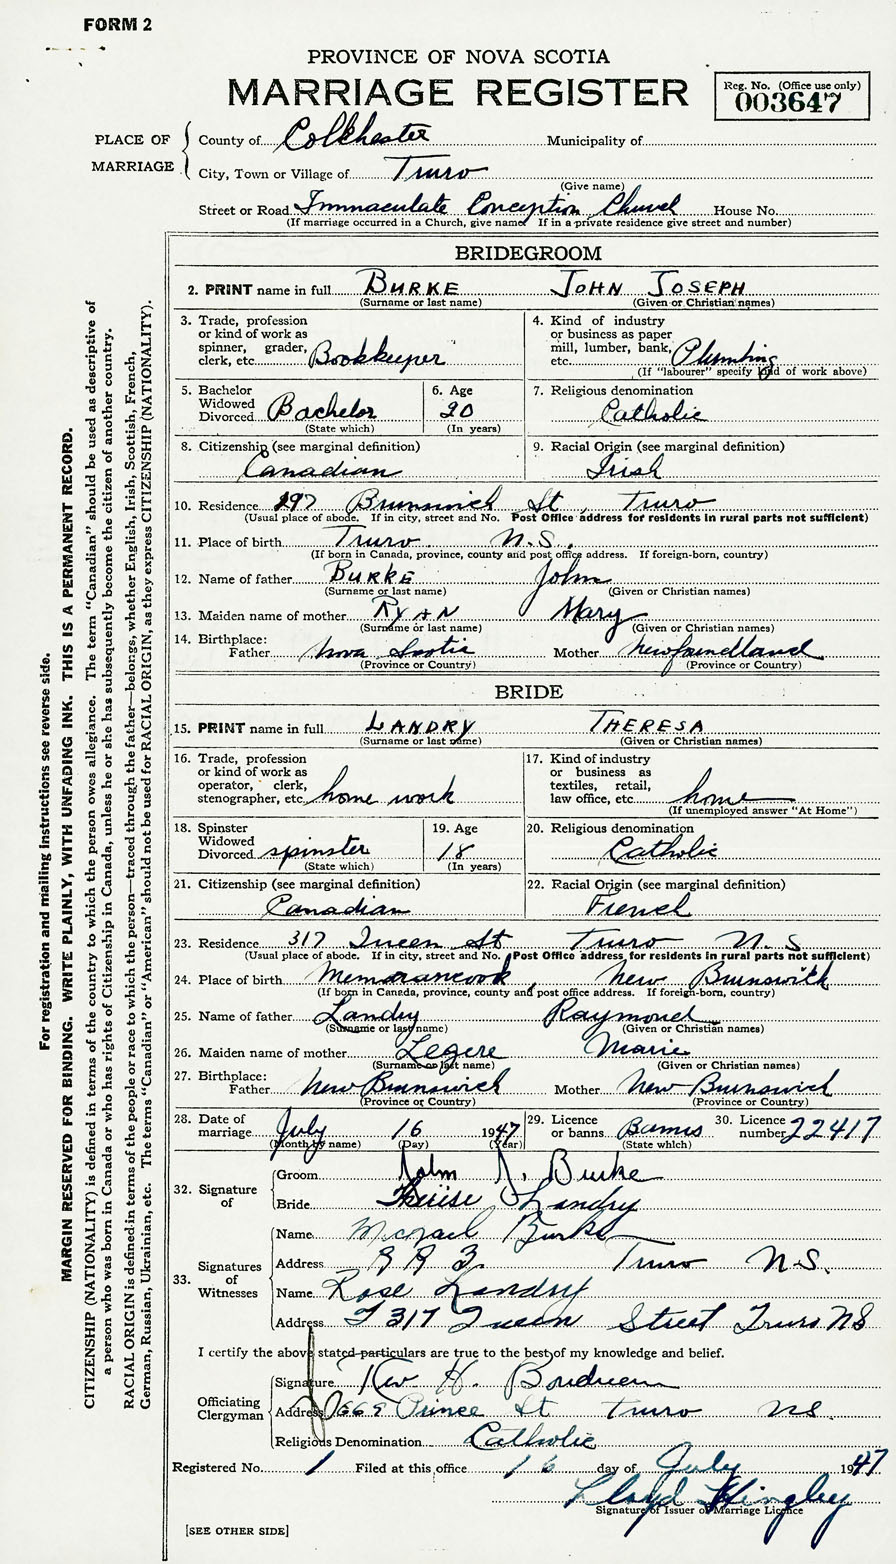 FORM 2
PROVINCE OF NOVA SCOTIA
MARRIAGE REGISTER
Reg. No. (Office use only)
003647
PLACE OF MARRIAGE
County of Colchester Municipality of
City, Town or Village of Truro
(Give name)
Street or Road Immaculate Conception Church House No.
(If marriage occurred in a Church, give name If in a private residence give street and number)
BRIDEGROOM
2. PRINT name in full BURKE JOHN JOSEPH
(Surname or last name) (Given or Christian names)
3. Trade, profession
or kind of work as
spinner, grader,
clerk, etc. Bookkeeper
4. Kind of industry
or business as paper
mill, lumber, bank,
etc. Plumbing
(If "labourer" specify kind of work above)
5. Bachelor
Widowed
Divorced Bachelor
(State which)
6. Age
20
(In years)
7. Religious denomination
Catholic
8. Citizenship (see marginal definition)
Canadian
9. Racial Origin (see marginal definition)
Irish
10. Residence 297 Brunswick St, Truro
(Usual place of abode. If in city, street and No. Post Office address for residents in rural parts not sufficient)
11. Place of birth Truro N.S.
(If born in Canada, province, county and post office address. If foreign-born, country)
12. Name of father BURKE John
(Surname or last name) (Given or Christian names)
13. Maiden name of mother RYAN Mary
(Surname or last name) (Given or Christian names)
14. Birthplace:
Father Nova Scotia Mother Newfoundland
(Province or Country) (Province or Country)
BRIDE
15. PRINT name in full LANDRY THERESA
(Surname or last name) (Given or Christian names)
16. Trade, profession
or kind of work as
operator, clerk,
stenographer, etc. home work
17. Kind of industry
or business as
textiles, retail,
law office, etc. home
(If unemployed answer "At Home")
18. Spinster
Widowed
Divorced spinster
(State which)
19. Age
18
(In years)
20. Religious denomination
Catholic
21. Citizenship (see marginal definition)
Canadian
22. Racial Origin (see marginal definition)
French
23. Residence 317 Queen St Truro N.S
(Usual place of abode. If in city, street and No. Post Office address for residents in rural parts not sufficient)
24. Place of birth Memorancook, New Brunswick
(If born in Canada, province, county and post office address. If foreign-born, country)
25. Name of father Landry Raymond
(Surname or last name) (Given or Christian names)
26. Maiden name of mother Legere Marie
(Surname or last name) (Given or Christian names)
27. Birthplace:
Father New Brunswick Mother New Brunswick
(Province or Country) (Province or Country)
28. Date of
marriage July 16 1947
(Month by name) (Day) (Year)
29. Licence
or banns Banns
(State which)
30. Licence
number 22417
32. Signature of
Groom John J. Burke
Bride Thérèse Landry
33. Signatures of Witnesses
Name Michael Burke
Address R R 3. Truro N.S.
Name Rose Landry
Address 317 Queen Street Truro NS
I certify the above stated particulars are true to the best of my knowledge and belief.
Officiating Clergyman
Signature Rev H. Boudreau
Address 669 Prince St Truro NS.
Religious Denomination Catholic
Registered No. 1 Filed at this office 16 day of July 1947
Lloyd Hingley
Signature of Issuer of Marriage Licence
[SEE OTHER SIDE]
For registration and mailing instructions see reverse side.
MARGIN RESERVED FOR BINDING. WRITE PLAINLY, WITH UNFADING INK. THIS IS A PERMANENT RECORD.
CITIZENSHIP (NATIONALITY) is defined in terms of the country to which the person owes allegiance. The term "Canadian" should be used as descriptive of
a person who was born in Canada or who has rights of Citizenship in Canada, unless he or she has subsequently become the citizen of another country.
RACIAL ORIGIN is defined in terms of the people or race to which the person—traced through the father—belongs, whether English, Irish, Scottish, French,
German, Russian, Ukrainian, etc. The terms "Canadian" or "American" should not be used for RACIAL ORIGIN, as they express CITIZENSHIP (NATIONALITY).